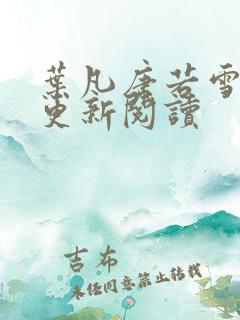 葉凡唐若雪
更新閱讀
吉布
未经同意禁止转载